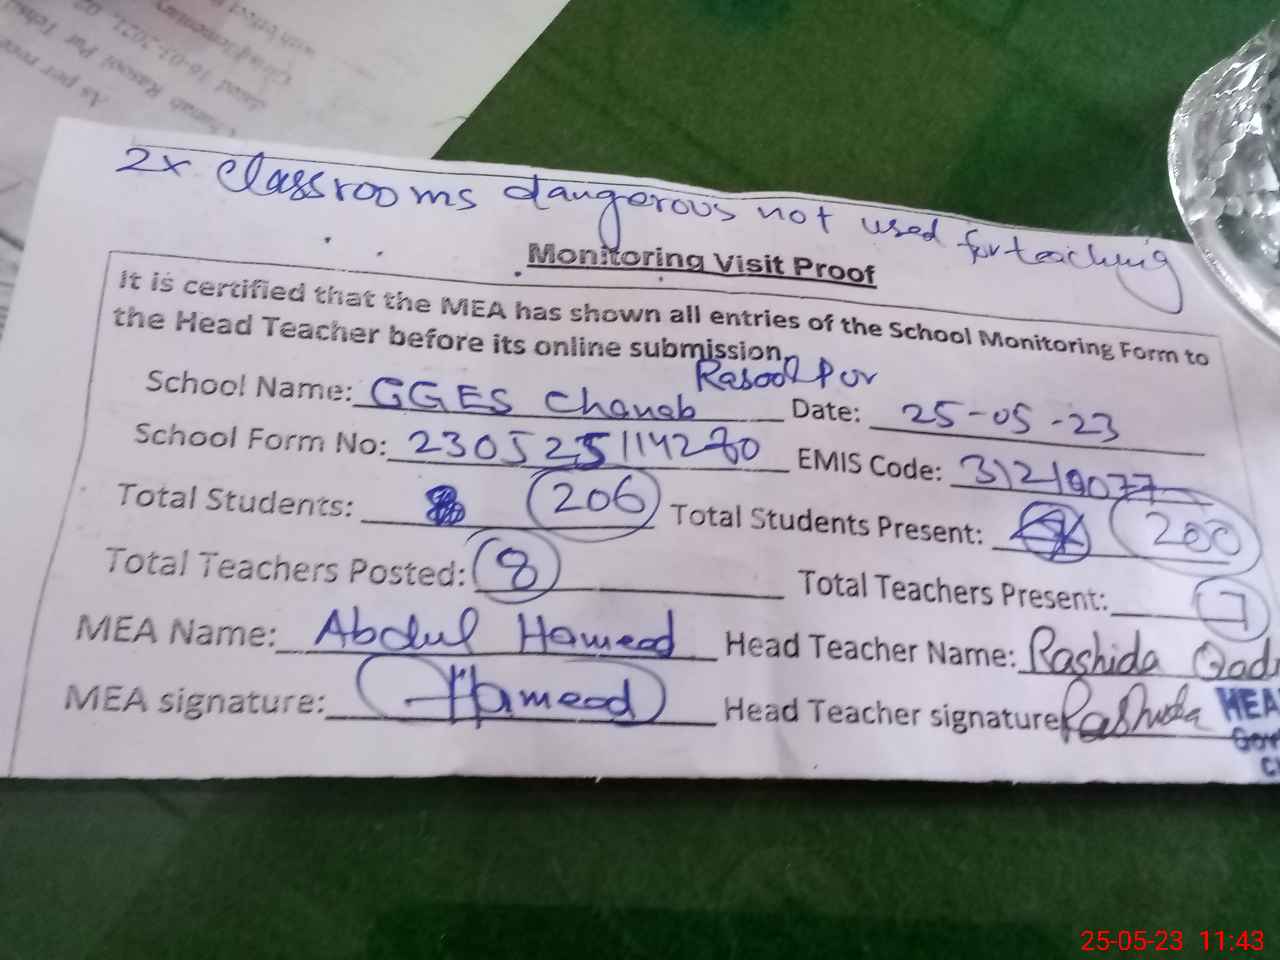 2x Classrooms dangerous not used for teaching
Monitoring Visit Proof
It is certified that the MEA has shown all entries of the School Monitoring Form to
the Head Teacher before its online submission.
School Name: GGES Chanab Rasool Pur Date: 25-05-23
School Form No: 230525114280 EMIS Code: 31219077
Total Students: 206 Total Students Present: 200
Total Teachers Posted: 8 Total Teachers Present: 7
MEA Name: Abdul Hameed Head Teacher Name: Rashida Qad
MEA signature: Hameed Head Teacher signature Rashida
HEA
Gov
C
25-05-23 11:43